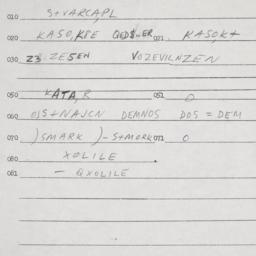 010 S+VARCAPL
020 KASO,KPE 021 KASOK+
030 23.ZESEN VOZEVILNZEN
050 KATA,R 051 0
060 DEMNOS DOS=DEM
070 )SMARK )-S+MORK 071 0
080 XOLILE
081 - QXOLILE